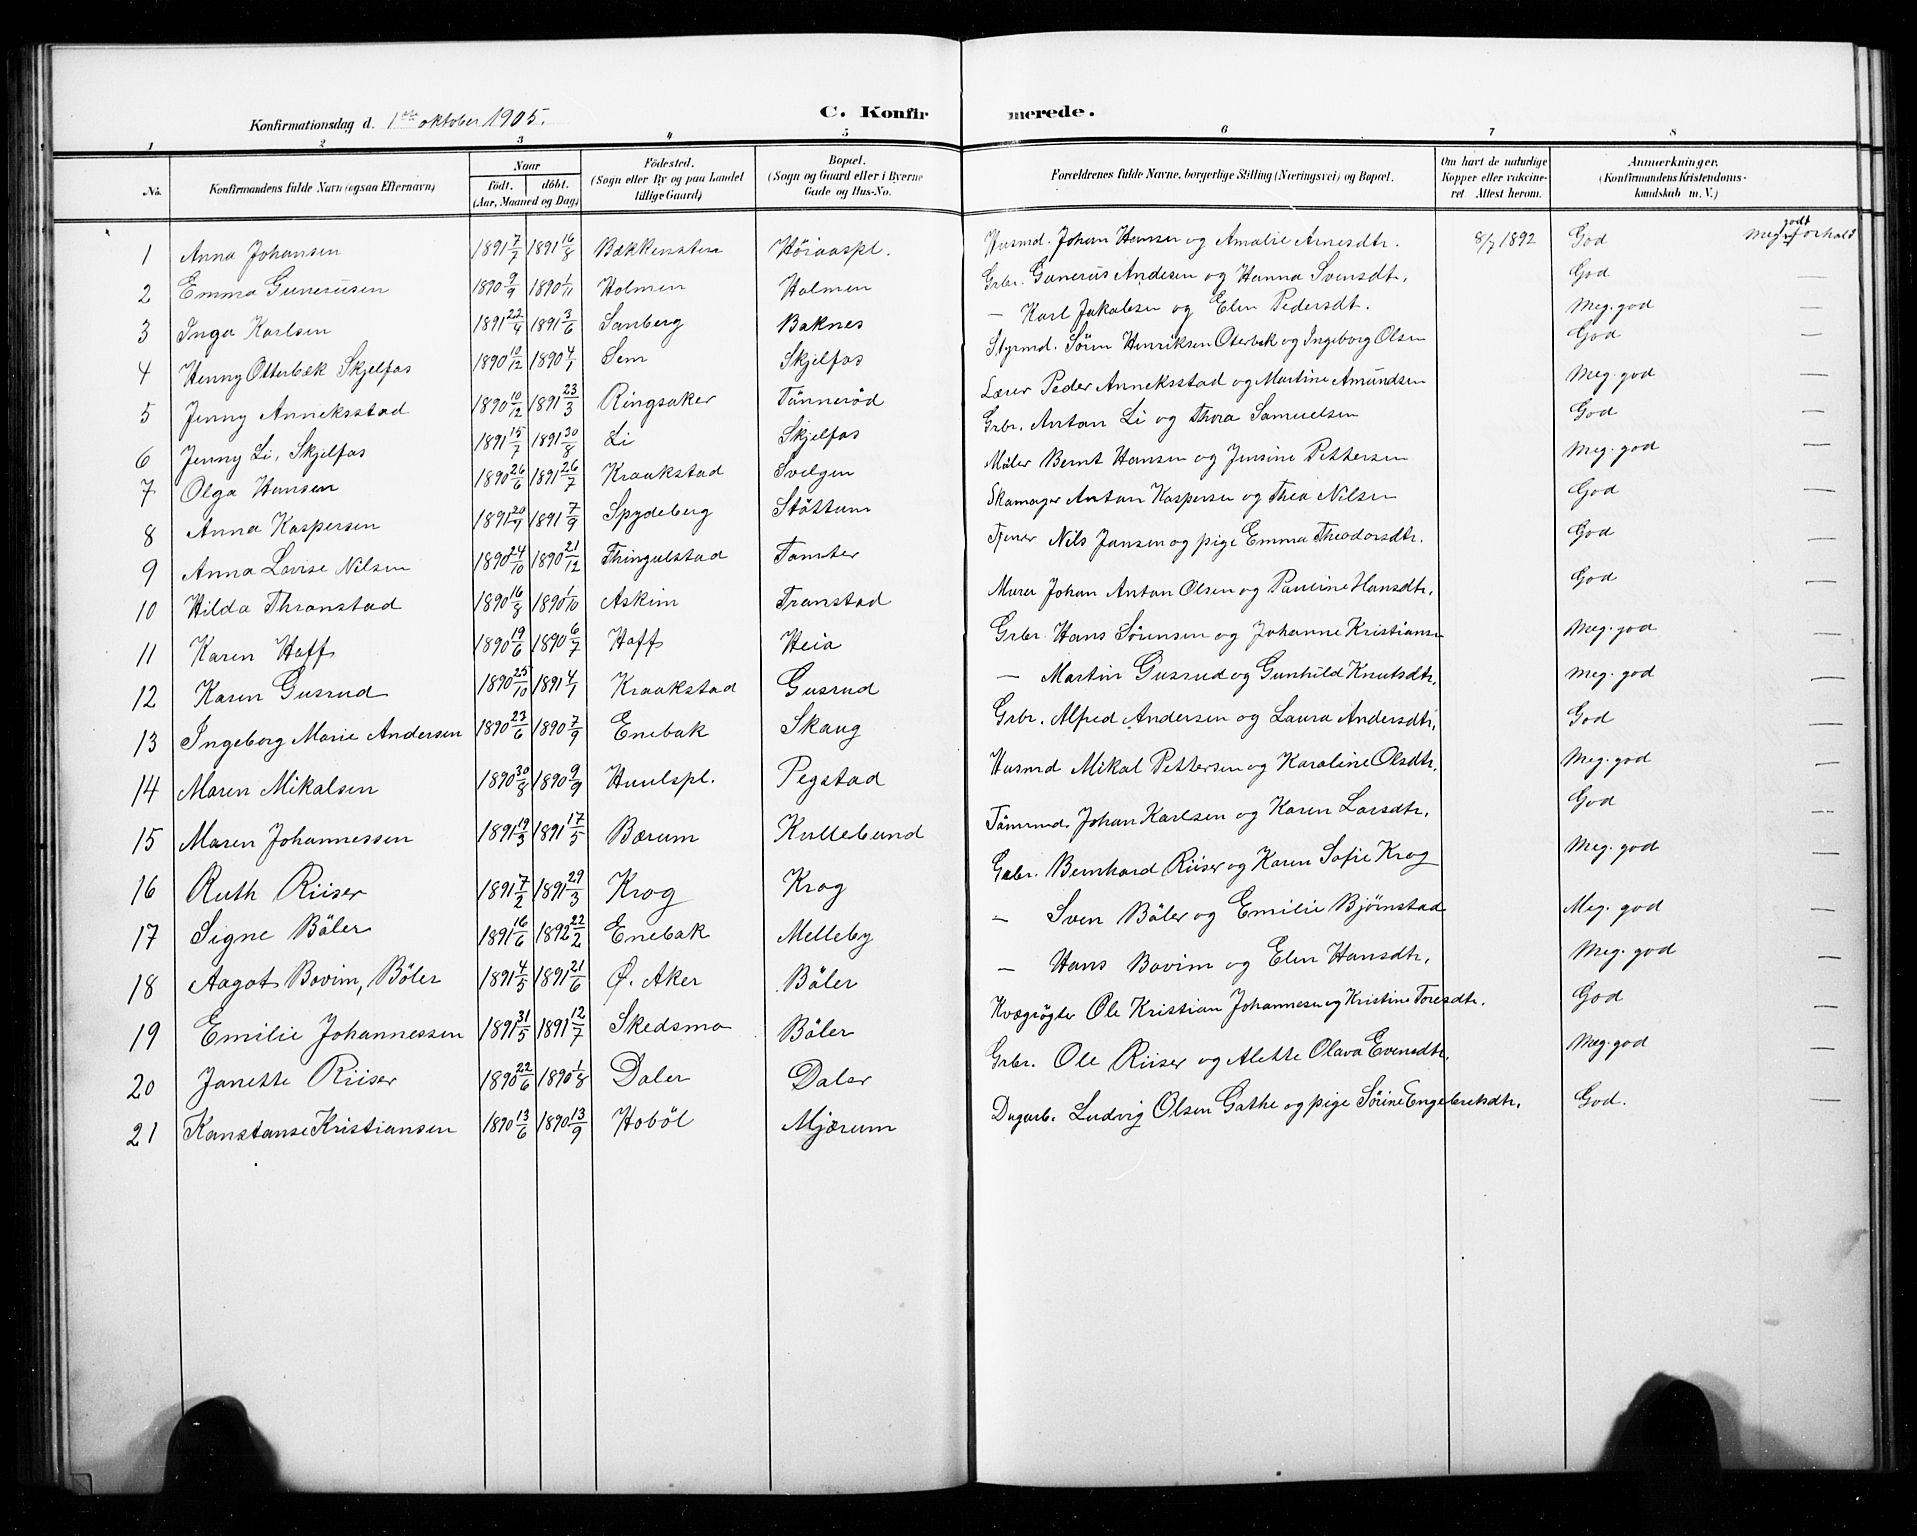 Konfirmationsdag d. 1ste oktober 1905.
C. Konfirmerede.
1 2 3 4 5 6 7 8
No. Konfirmandens fulde Navn (ogsaa Efternavn) Naar födt. döbt. (Aar, Maaned og Dag) Födested. (Sogn eller By og paa Landet tillige Gaard) Bopæl. (Sogn og Gaard eller i Byerne Gade og Hus-No. Forældrenes fulde Navne, borgerlige Stilling (Næringsvei) og Bopæl. Om havt de naturlige Kopper eller vakcineret. Attest herom. Anmærkninger. (Konfirmandens Kristendomskundskab m. V.)
1 Anna Johansen 1891 7/7 1891 16/8 Bækkensten Höiaaspl. Husmd. Johan Hansen og Amalie Arnesdtr. 8/7 1892 God Meg. godt forhold
2 Emma Gunerusen 1890 9/9 1890 1/11 Holmen Holmen Grbr. Gunerus Andesen og Hanna Svensdtr. God —
3 Inga Karlsen 1891 22/4 1891 3/6 Sanberg Baknes — Karl Jakobsen og Elen Pedersdt. Meg. god —
4 Henny Otterbæk Skjelfos 1890 10/12 1890 4/1 Sem Skjelfos Styrmd. Sören Henriksen Oterbek og Ingeborg Olsen God —
5 Jenny Anneksstad 1890 10/12 1891 23/3 Ringsaker Tönneröd Lærer Peder Anneksstad og Martine Amundsen Meg. god —
6 Jenny Li, Skjelfos 1891 15/7 1891 30/8 Li Skjelfos Grbr. Anton Li og Thora Samuelsen God —
7 Olga Hansen 1890 26/6 1891 26/7 Kraakstad Svelgen Maler Bernt Hansen og Jensine Pettersen Meg. god —
8 Anna Kaspersen 1891 20/4 1891 7/9 Spydeberg Stöttum Skomager Anton Kaspersen og Thea Nilsen God —
9 Anna Lovise Nilsen 1890 24/10 1890 21/12 Thingulstad Tomter Tjener Nils Jansen og pige Emma Theodorsdtr. God —
10 Hilda Thronstad 1890 16/8 1890 1/10 Askim Tronstad Murer Johan Anton Olsen og Pauline Hansdtr. God —
11 Karen Hoff 1890 19/6 1890 6/7 Hoff Heia Grbr. Hans Sörensen og Johanne Kristianse Meg. god —
12 Karen Gusrud 1890 25/10 1891 4/1 Kraakstad Gusrud — Martin Gusrud og Gunhild Knutsdtr. Meg. god —
13 Ingeborg Marie Andersen 1890 23/6 1890 7/9 Enebak Skaug Grbr. Alfred Andersen og Laura Andersdtr. God —
14 Maren Mikalsen 1890 30/8 1890 9/9 Huulspl. Pegstad Husmd Mikal Pettersen og Karoline Olsdtr. Meg. god —
15 Maren Johannessen 1891 19/3 1891 17/5 Bærum Kullebund Tömmd. Johan Karlsen og Karen Larsdtr. God —
16 Ruth Riiser 1891 7/2 1891 29/3 Krog Krog Grbr. Bernhard Riiser og Karen Sofie Krog Meg. god —
17 Signe Böler 1891 16/6 1892 22/2 Enebak Melleby — Sven Böler og Emilie Bjørnstad Meg. god —
18 Aagot Bovim, Böler 1891 4/5 1891 21/6 Ø. Aker Böler — Hans Bovim og Elen Hansdtr. Meg. god —
19 Emilie Johannessen 1891 31/5 1891 12/7 Skedsmo Böler Kvægrögter Ole Kristian Johannesen og Kristine Toresdtr. God —
20 Janette Riiser 1890 22/6 1890 1/8 Daler Daler Grbr. Ole Riiser og Alette Olava Evensdtr. Meg. god —
21 Konstanse Kristiansen 1890 13/6 1890 13/9 Hoböl Mjærum Dagarb. Ludvig Olsen Gathe og pige Sörine Engebretsdtr. God. —